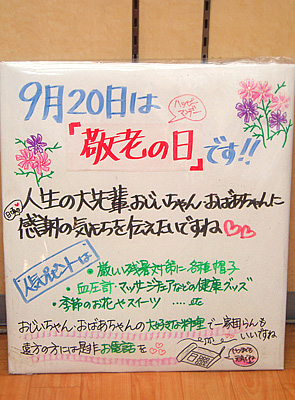 9月20日は
ハッピーマンデー
「敬老の日」です!!
人生の大先輩おじいちゃん、おばあちゃんに
日頃の
感謝の気持ちを伝えたいですね
人気プレゼントは
・厳しい残暑対策に 各種帽子
・血圧計・マッサージチェアなどの健康グッズ
・季節のお花やスイーツ ‥‥etc
おじいちゃん、おばあちゃんの大好きな料理で一家団らんもいいですね
遠方の方には是非お電話を